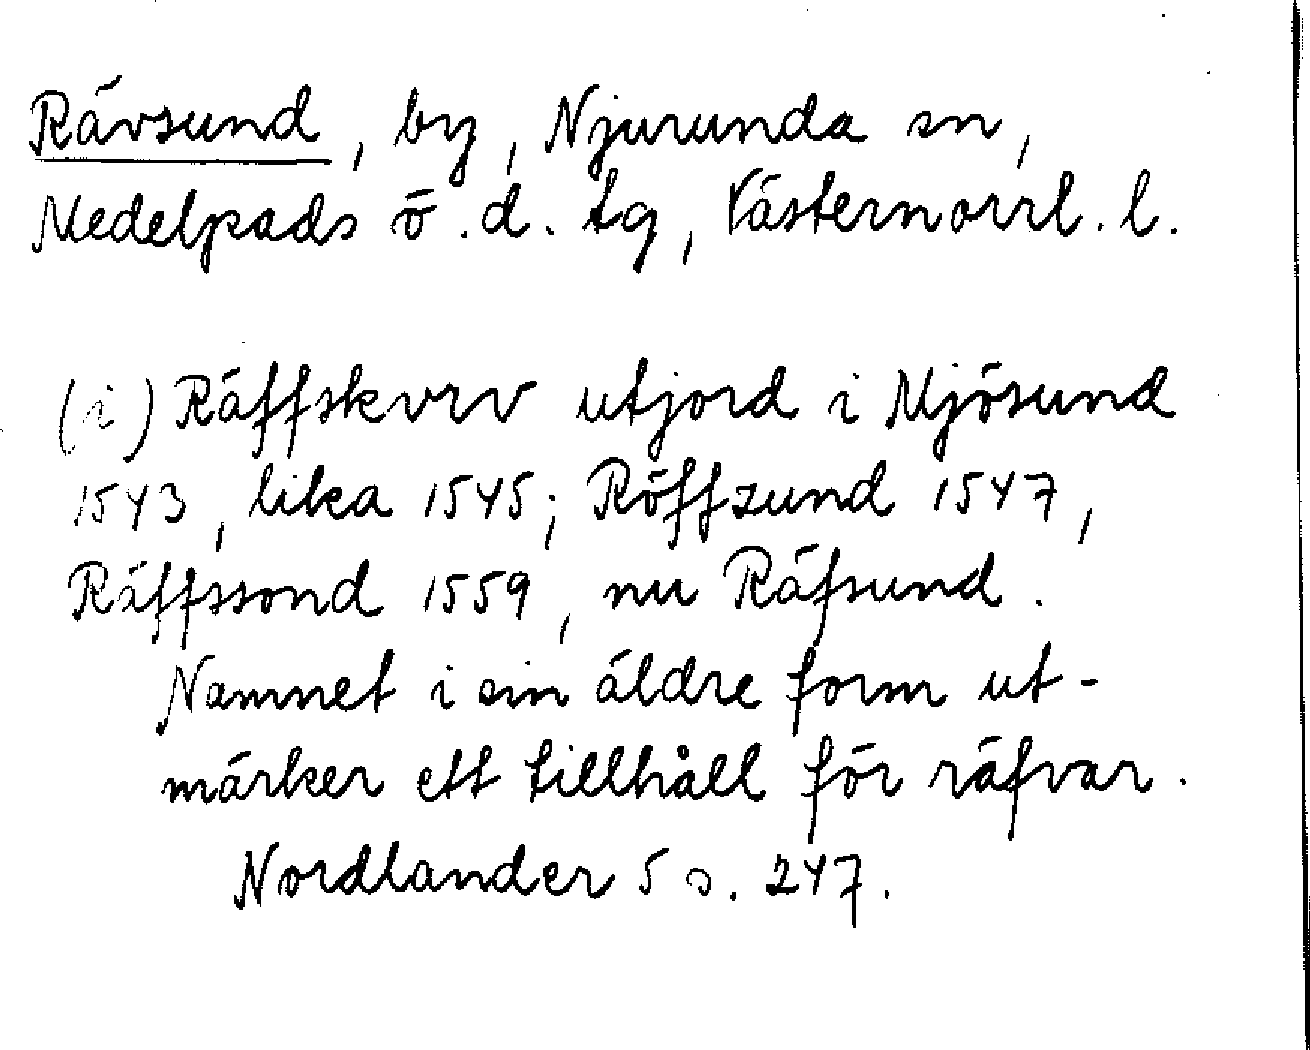 Rävsund, by, Njurunda sn,
Medelpads ö.d. tg, Västernorrl. l.
(i) Räffskvrv utjord i Mjösund
1543, lika 1545; Röffzund 1547,
Räffssond 1559, nu Räfsund.
Namnet i sin äldre form ut-
märker ett tillhåll för räfvar.
Nordlander 5 s. 247.